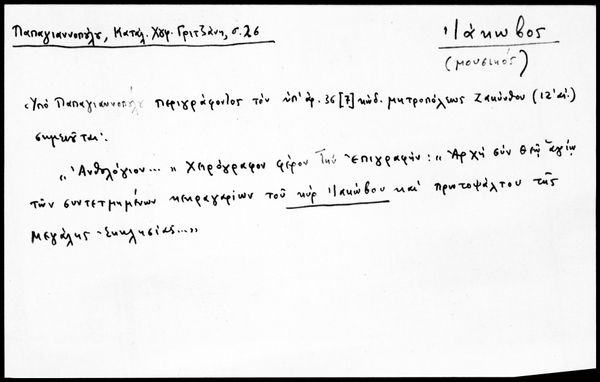 Παπαγιαννοπούλου, Κατάλ. Χφ. Γριτζάνη, σ. 26
Ἰάκωβος
(μουσικός)
Ὑπό Παπαγιαννοπούλου περιγράφοντος τόν ὑπ' ἀρ. 36 [7] κώδ. μητροπόλεως Ζακύνθου (ΙΖ' αἰ.)
σημειοῦται:
"Ἀνθολόγιον..." Χειρόγραφον φέρον τήν ἐπιγραφήν: "Ἀρχή σύν Θεῷ ἁγίῳ
τῶν συντετμημένων κεκραγαρίων τοῦ κύρ Ἰακώβου καί πρωτοψάλτου τῆς
Μεγάλης Ἐκκλησίας..."